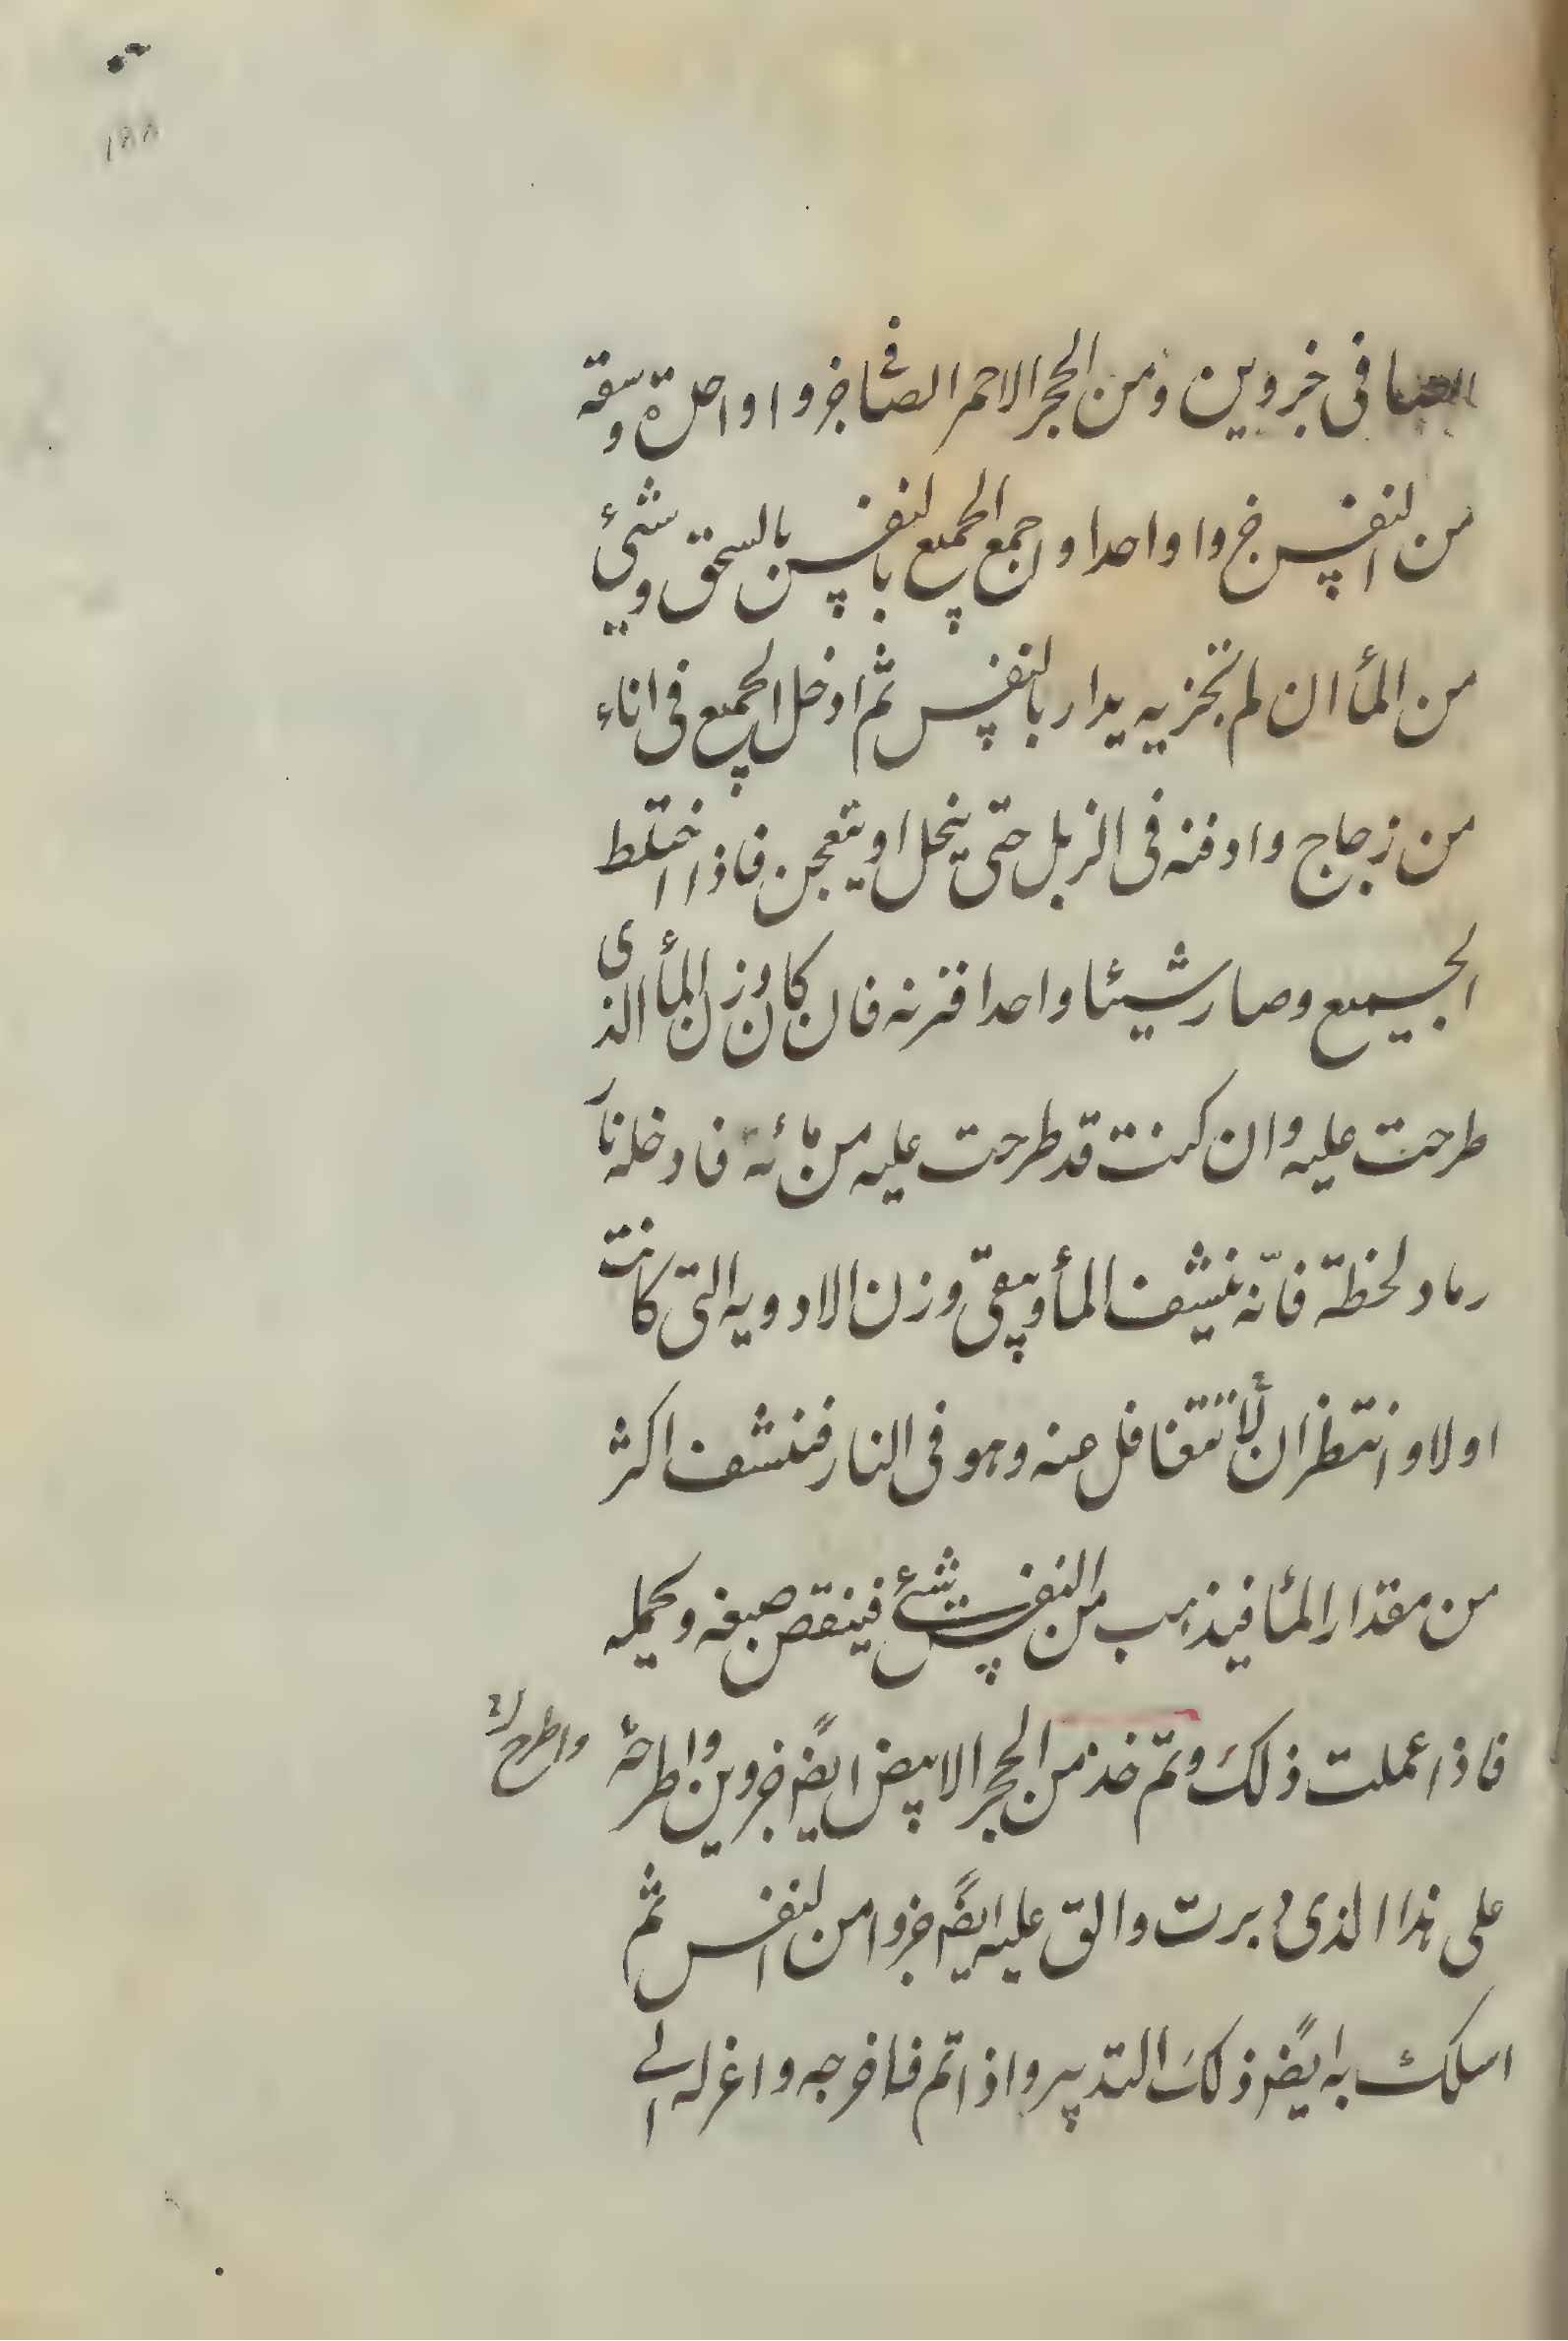 ١٨٨
الصافى جزوين ومن الحجر الاحمر الصافى جزوا واحدة وسقه
من النفس جزوا واحدا واجمع الجميع بالنفس بالسحق وبشئ
من المأ ان لم تجزيه يدار بالنفس ثم ادخل الجميع فى اناء
من زجاج وادفنه فى الزبل حتى ينحل او يتعجن فاذا اختلط
الجميع وصار شيئا واحدا فزنه فان كان وزن المأ الذى
طرحت عليه وان كنت قد طرحت عليه من مائه فادخله نار
رماد لحظة فانّه ينشف المأ ويبقى وزن الادويه التى كانت
اولا وانتظر ان لا تتغافل عنه وهو فى النار فنشف اكثر
من مقدار المأ فيذهب من النفس شئ فينقص صبغه وحمله
فاذا عملت ذلك وتم خذ من الحجر الابيض ايضً جزوين واطرحه
واطرح
على هذا الذى دبرت والق عليه ايضً جزوا من النفس ثم
اسلك به ايضً ذلك التدبير واذا تم فاخرجه واعزله الى